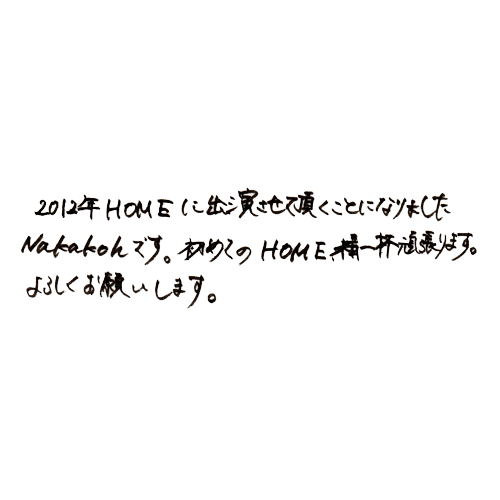 2012年HOMEに出演させて頂くことになりました
Nakakohです。初めてのHOME、精一杯頑張ります。
よろしくお願いします。